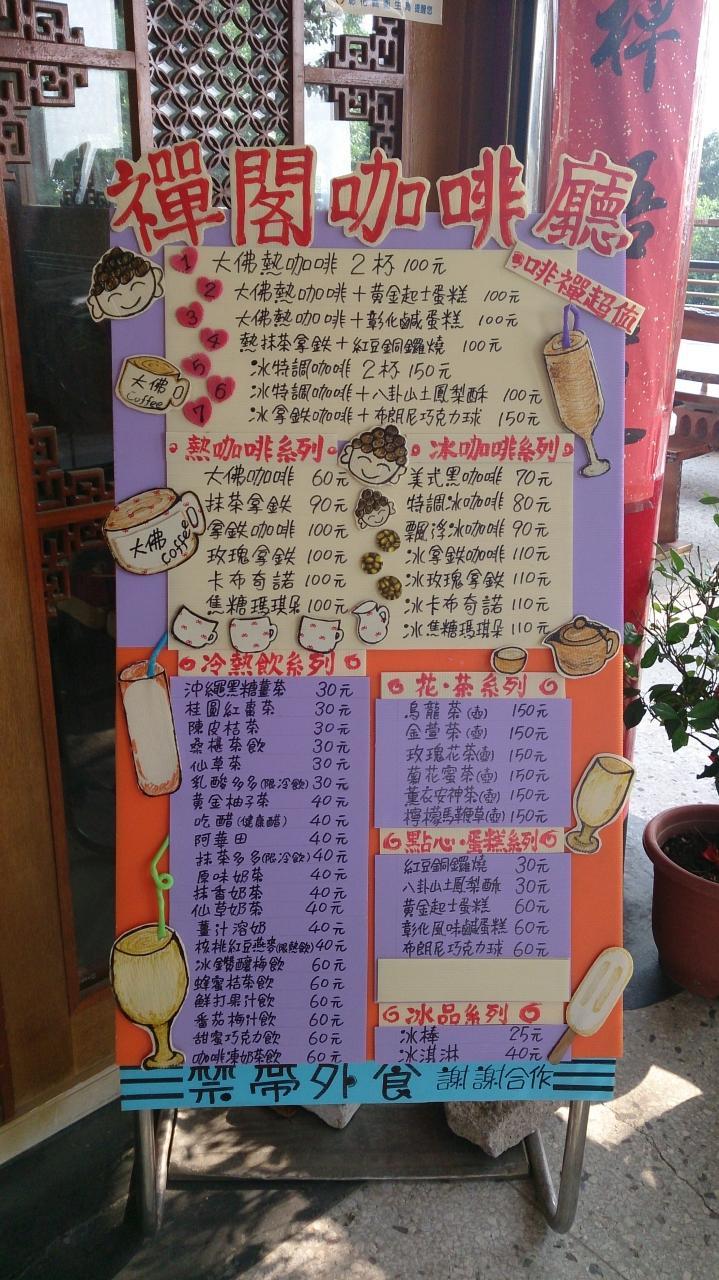 禪閣咖啡廳
啡禪超值
1 大佛熱咖啡 2杯 100元
2 大佛熱咖啡+黃金起士蛋糕 100元
3 大佛熱咖啡+彰化鹹蛋糕 100元
4 熱抹茶拿鉄+紅豆銅鑼燒 100元
5 冰特調咖啡 2杯 150元
6 冰特調咖啡+八卦山土鳳梨酥 100元
7 冰拿鉄咖啡+布朗尼巧克力球 150元
大佛
Cuffee
熱咖啡系列
大佛咖啡 60元
抹茶拿鉄 90元
拿鉄咖啡 100元
玫瑰拿鉄 100元
卡布奇諾 100元
焦糖瑪琪朵 100元
大佛
coffee
冰咖啡系列
美式黑咖啡 70元
特調冰咖啡 80元
飄浮冰咖啡 90元
冰拿鉄咖啡 110元
冰玫瑰拿鉄 110元
冰卡布奇諾 110元
冰焦糖瑪琪朵 110元
冷熱飲系列
沖繩黑糖薑茶 30元
桂圓紅棗茶 30元
陳皮桔茶 30元
桑椹茶飲 30元
仙草茶 30元
乳酸多多(限冷飲) 30元
黃金柚子茶 40元
吃醋(健康醋) 40元
阿華田 40元
抹茶多多(限冷飲) 40元
原味奶茶 40元
抹香奶茶 40元
仙草奶茶 40元
薑汁溶奶 40元
核桃紅豆燕麥(限熱飲) 40元
冰鑽釀梅飲 60元
蜂蜜桔茶飲 60元
鮮打果汁飲 60元
番茄梅汁飲 60元
甜蜜巧克力飲 60元
咖啡凍奶茶飲 60元
花·茶系列
烏龍茶(壺) 150元
金萱茶(壺) 150元
玫瑰花茶(壺) 150元
菊花蜜茶(壺) 150元
薰衣安神茶(壺) 150元
檸檬馬鞭草(壺) 150元
點心·蛋糕系列
紅豆銅鑼燒 30元
八卦山土鳳梨酥 30元
黃金起士蛋糕 60元
彰化風味鹹蛋糕 60元
布朗尼巧克力球 60元
冰品系列
冰棒 25元
冰淇淋 40元
禁帶外食 謝謝合作